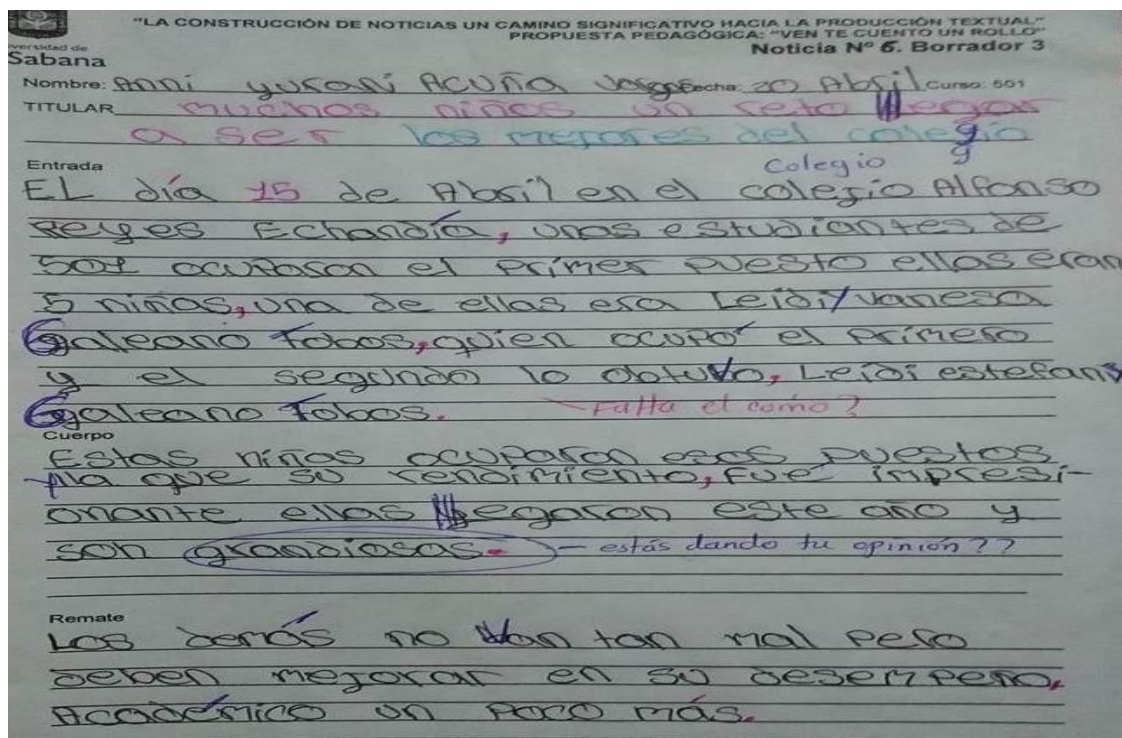 "LA CONSTRUCCIÓN DE NOTICIAS UN CAMINO SIGNIFICATIVO HACIA LA PRODUCCIÓN TEXTUAL"
PROPUESTA PEDAGÓGICA: "VEN TE CUENTO UN ROLLO"
Noticia Nº 6. Borrador 3
versidad de
Sabana
Nombre: Anni yurani Acuña Fecha: 20 Abril Curso: 501
TITULAR muchos niños un reto llegar
a ser los mejores del colegio
g
Entrada
Colegio g
EL día 15 de Abril en el colegio Alfonso
Reyes Echandía, unas estudiantes de
501 ocuparon el primer puesto ellas eran
5 niñas, una de ellas era Leidi Vanesa
Galeano Tobos, quien ocupó el primero
y el segundo lo obtuvo, Leidi estefany
Galeano Tobos. - Falta el como?
Cuerpo
Estas niñas ocuparon esos puestos
ya que su rendimiento, fue impresi-
onante ellas llegaron este año y
son grandiosas. - estás dando tu opinión??
Remate
Los demás no van tan mal pero
deben mejorar en su desempeño,
Académico un poco más.